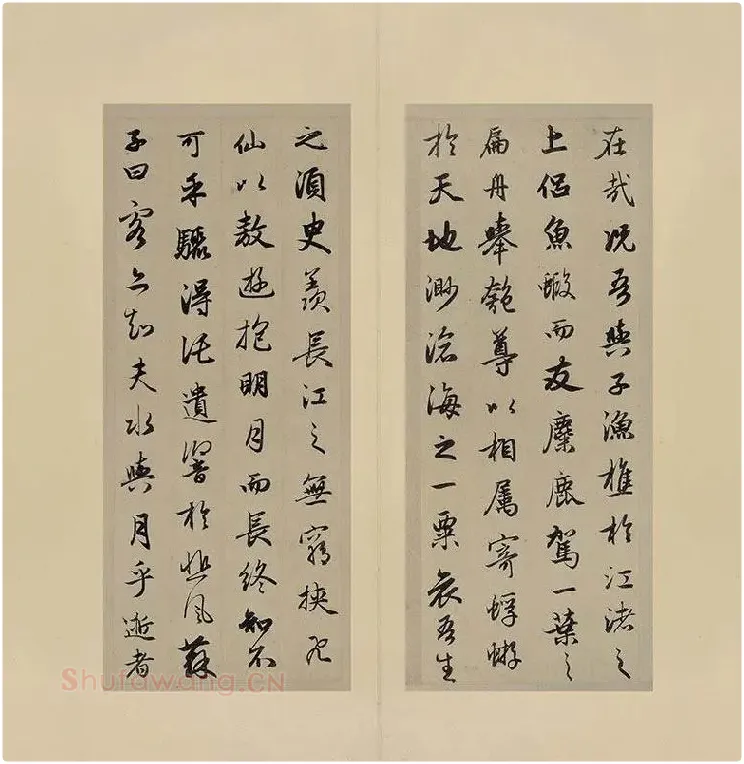 在哉況吾與子漁樵於江渚之
上侶魚鰕而友麋鹿駕一葉之
扁舟舉匏尊以相属寄蜉蝣
於天地渺滄海之一粟哀吾生
之須臾羨長江之無窮挾飛
仙以敖遊抱明月而長終知不
可乎驟得託遺響於悲風蘇
子曰客亦知夫水與月乎逝者
Shufawang.CN